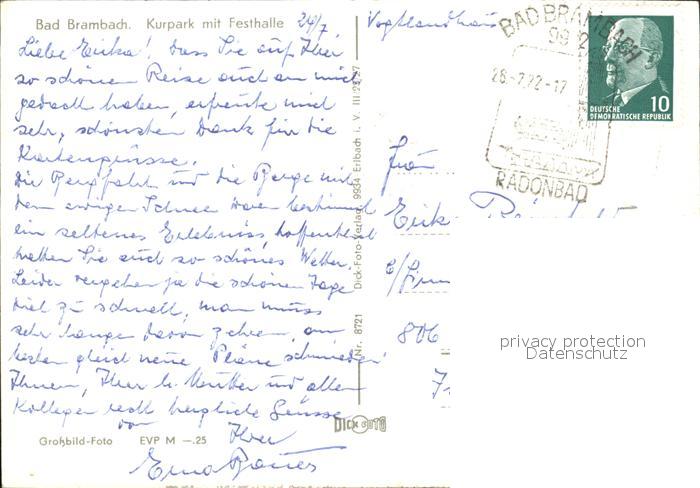 Bad Brambach. Kurpark mit Festhalle 24/7.
Liebe Erika! Dass Sie auf Ihrer
so schönen Reise auch an mich
gedacht haben, erfreute mich
sehr, schönsten Dank für die
Kartengrüsse.
Die Bergfahrt und die Berge mit
dem ewigen Schnee waren bestimmt
ein seltenes Erlebniss, hoffentlich
hatten Sie auch so schönes Wetter.
Leider vergehen ja die schönen Tage
viel zu schnell, man muss
sehr lange davon zehren, am
besten gleich neue Pläne schmieden
Ihnen, Ihrer Mutter und allen
Kollegen recht herzliche Grüsse
von Ihrer
Großbild-Foto EVP M —.25
Nr. 8721
Dick-Foto-Verlag 9934 Erlbach i. V.
DICK FOTO
BAD BRAMBACH
26.-7.72-17
RADONBAD
10
DEUTSCHE
DEMOKRATISCHE REPUBLIK
Frau
806
privacy protection
Datenschutz